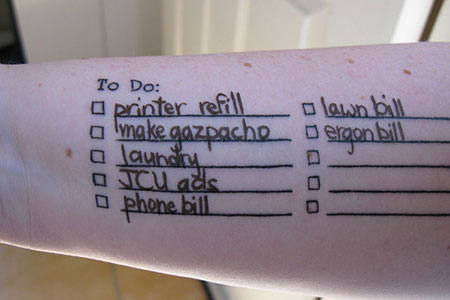 To Do:
printer refill
make gazpacho
laundry
JCU ads
phone bill
lawn bill
ergon bill